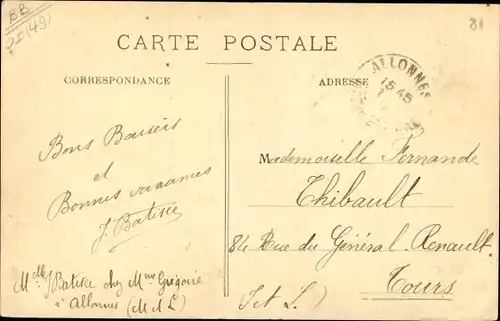 BB
(49)
31
CARTE POSTALE
CORRESPONDANCE
ADRESSE
ALLONNES
15 45
Bons Baisers
et
Bonnes vacances
J. Batisse
Mademoiselle Fernande
Thibault
84 Rue du Général Renault
Tours
I et L.)
Batisse chez Mme Grégoire
à Allonnes (M et L)